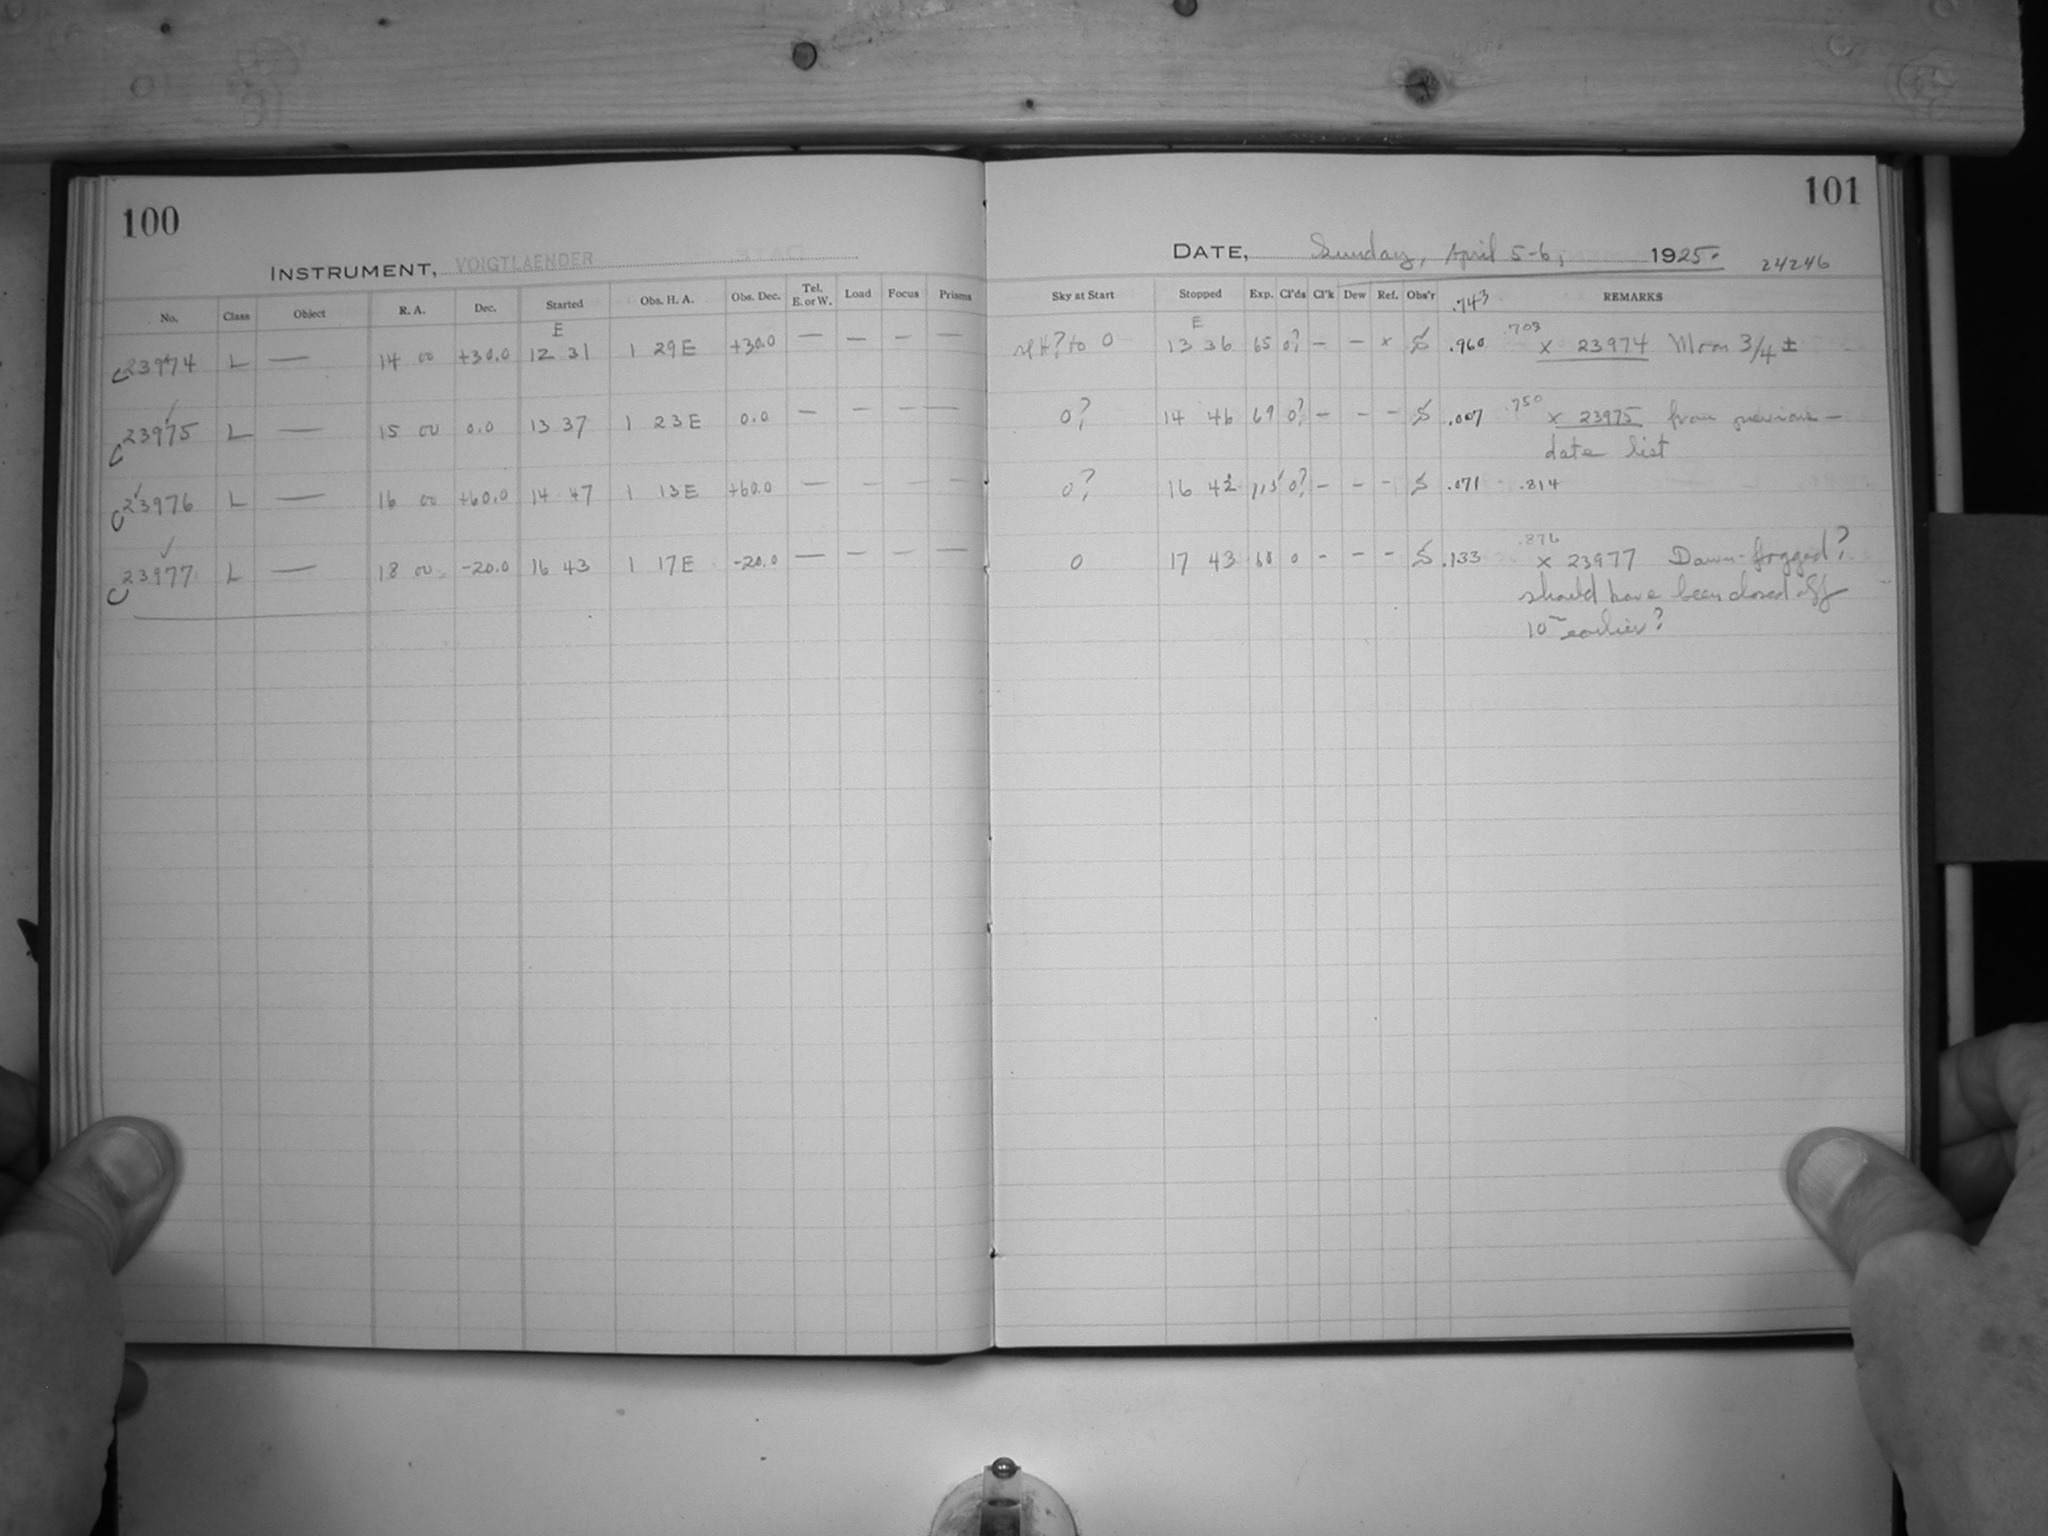 100
INSTRUMENT, VOIGTLAENDER
No. Class Object R. A. Dec. Started Obs. H. A. Obs. Dec. Tel. E. or W. Load Focus Prisms
E
23974 L — 14 00 +30.0 12 31 1 29 E +30.0 — — — —
23975 L — 15 00 0.0 13 37 1 23 E 0.0 — — — —
23976 L — 16 00 +60.0 14 47 1 13 E +60.0 — — — —
23977 L — 18 00 -20.0 16 43 1 17 E -20.0 — — — —
101
DATE, Sunday, April 5-6, 1925. 24246
Sky at Start Stopped Exp. Cl'ds Cl'k Dew Ref. Obs'r .743 REMARKS
E .703
to 0 13 36 65 0? — — x .960 x 23974 Moon 3/4 ±
.750
0? 14 46 69 0? — — — .007 x 23975 from previous —
date list
0? 16 42 115 0? — — — .071 .814
.876
0 17 43 60 0 - - - .133 x 23977 Dawn-fogged?
should have been closed off
10 earlier?